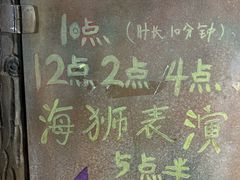 10点 (时长10分钟)
12点 2点 4点
海狮表演
5点半